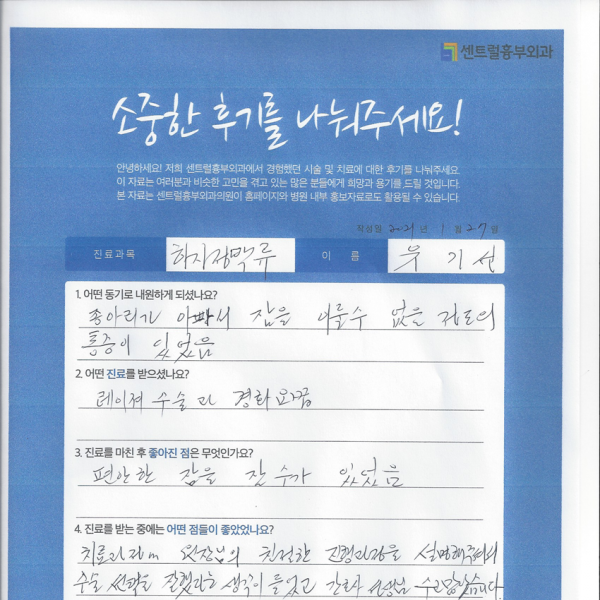 센트럴흉부외과
소중한 후기를 나눠주세요!
안녕하세요! 저희 센트럴흉부외과에서 경험했던 시술 및 치료에 대한 후기를 나눠주세요.
이 자료는 여러분과 비슷한 고민을 겪고 있는 많은 분들에게 희망과 용기를 드릴 것입니다.
본 자료는 센트럴흉부외과의원이 홈페이지와 병원 내부 홍보자료로도 활용될 수 있습니다.
작성일 2021년 1월 27일
진료과목 하지정맥류 이 름 우기선
1. 어떤 동기로 내원하게 되셨나요?
종아리가 아파서 잠을 이룰수 없을 정도의
통증이 있었음
2. 어떤 진료를 받으셨나요?
레이져 수술과 경화요법
3. 진료를 마친 후 좋아진 점은 무엇인가요?
편안한 잠을 잘수가 있었음
4. 진료를 받는 중에는 어떤 점들이 좋았었나요?
치료과정 원장님의 친절한 진행과정을 설명해주셔서
수술 선택을 잘했다는 생각이 들었고 간호 선생님 수고많았습니다